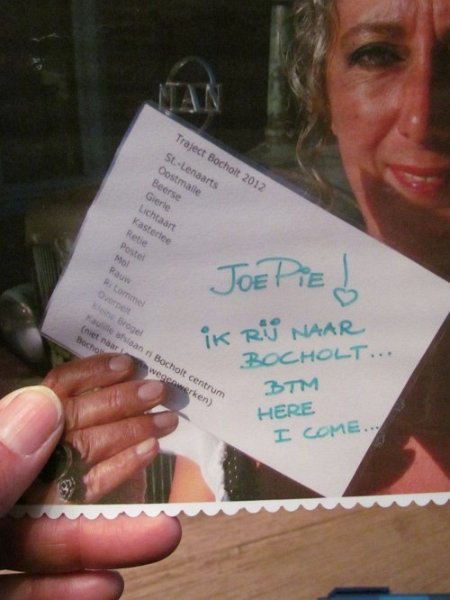 MAN
Traject Bocholt 2012
St.-Lenaarts
Oostmalle
Beerse
Gierle
Lichtaart
Kasterlee
Retie
Postel
Mol
Rauw
Ri Lommel
Overpelt
Kleine Brogel
Kaulille afslaan ri Bocholt centrum
(niet naar wegenwerken)
Bocholt
JOEPIE!
IK RIJ NAAR
BOCHOLT...
BTM
HERE
I COME...